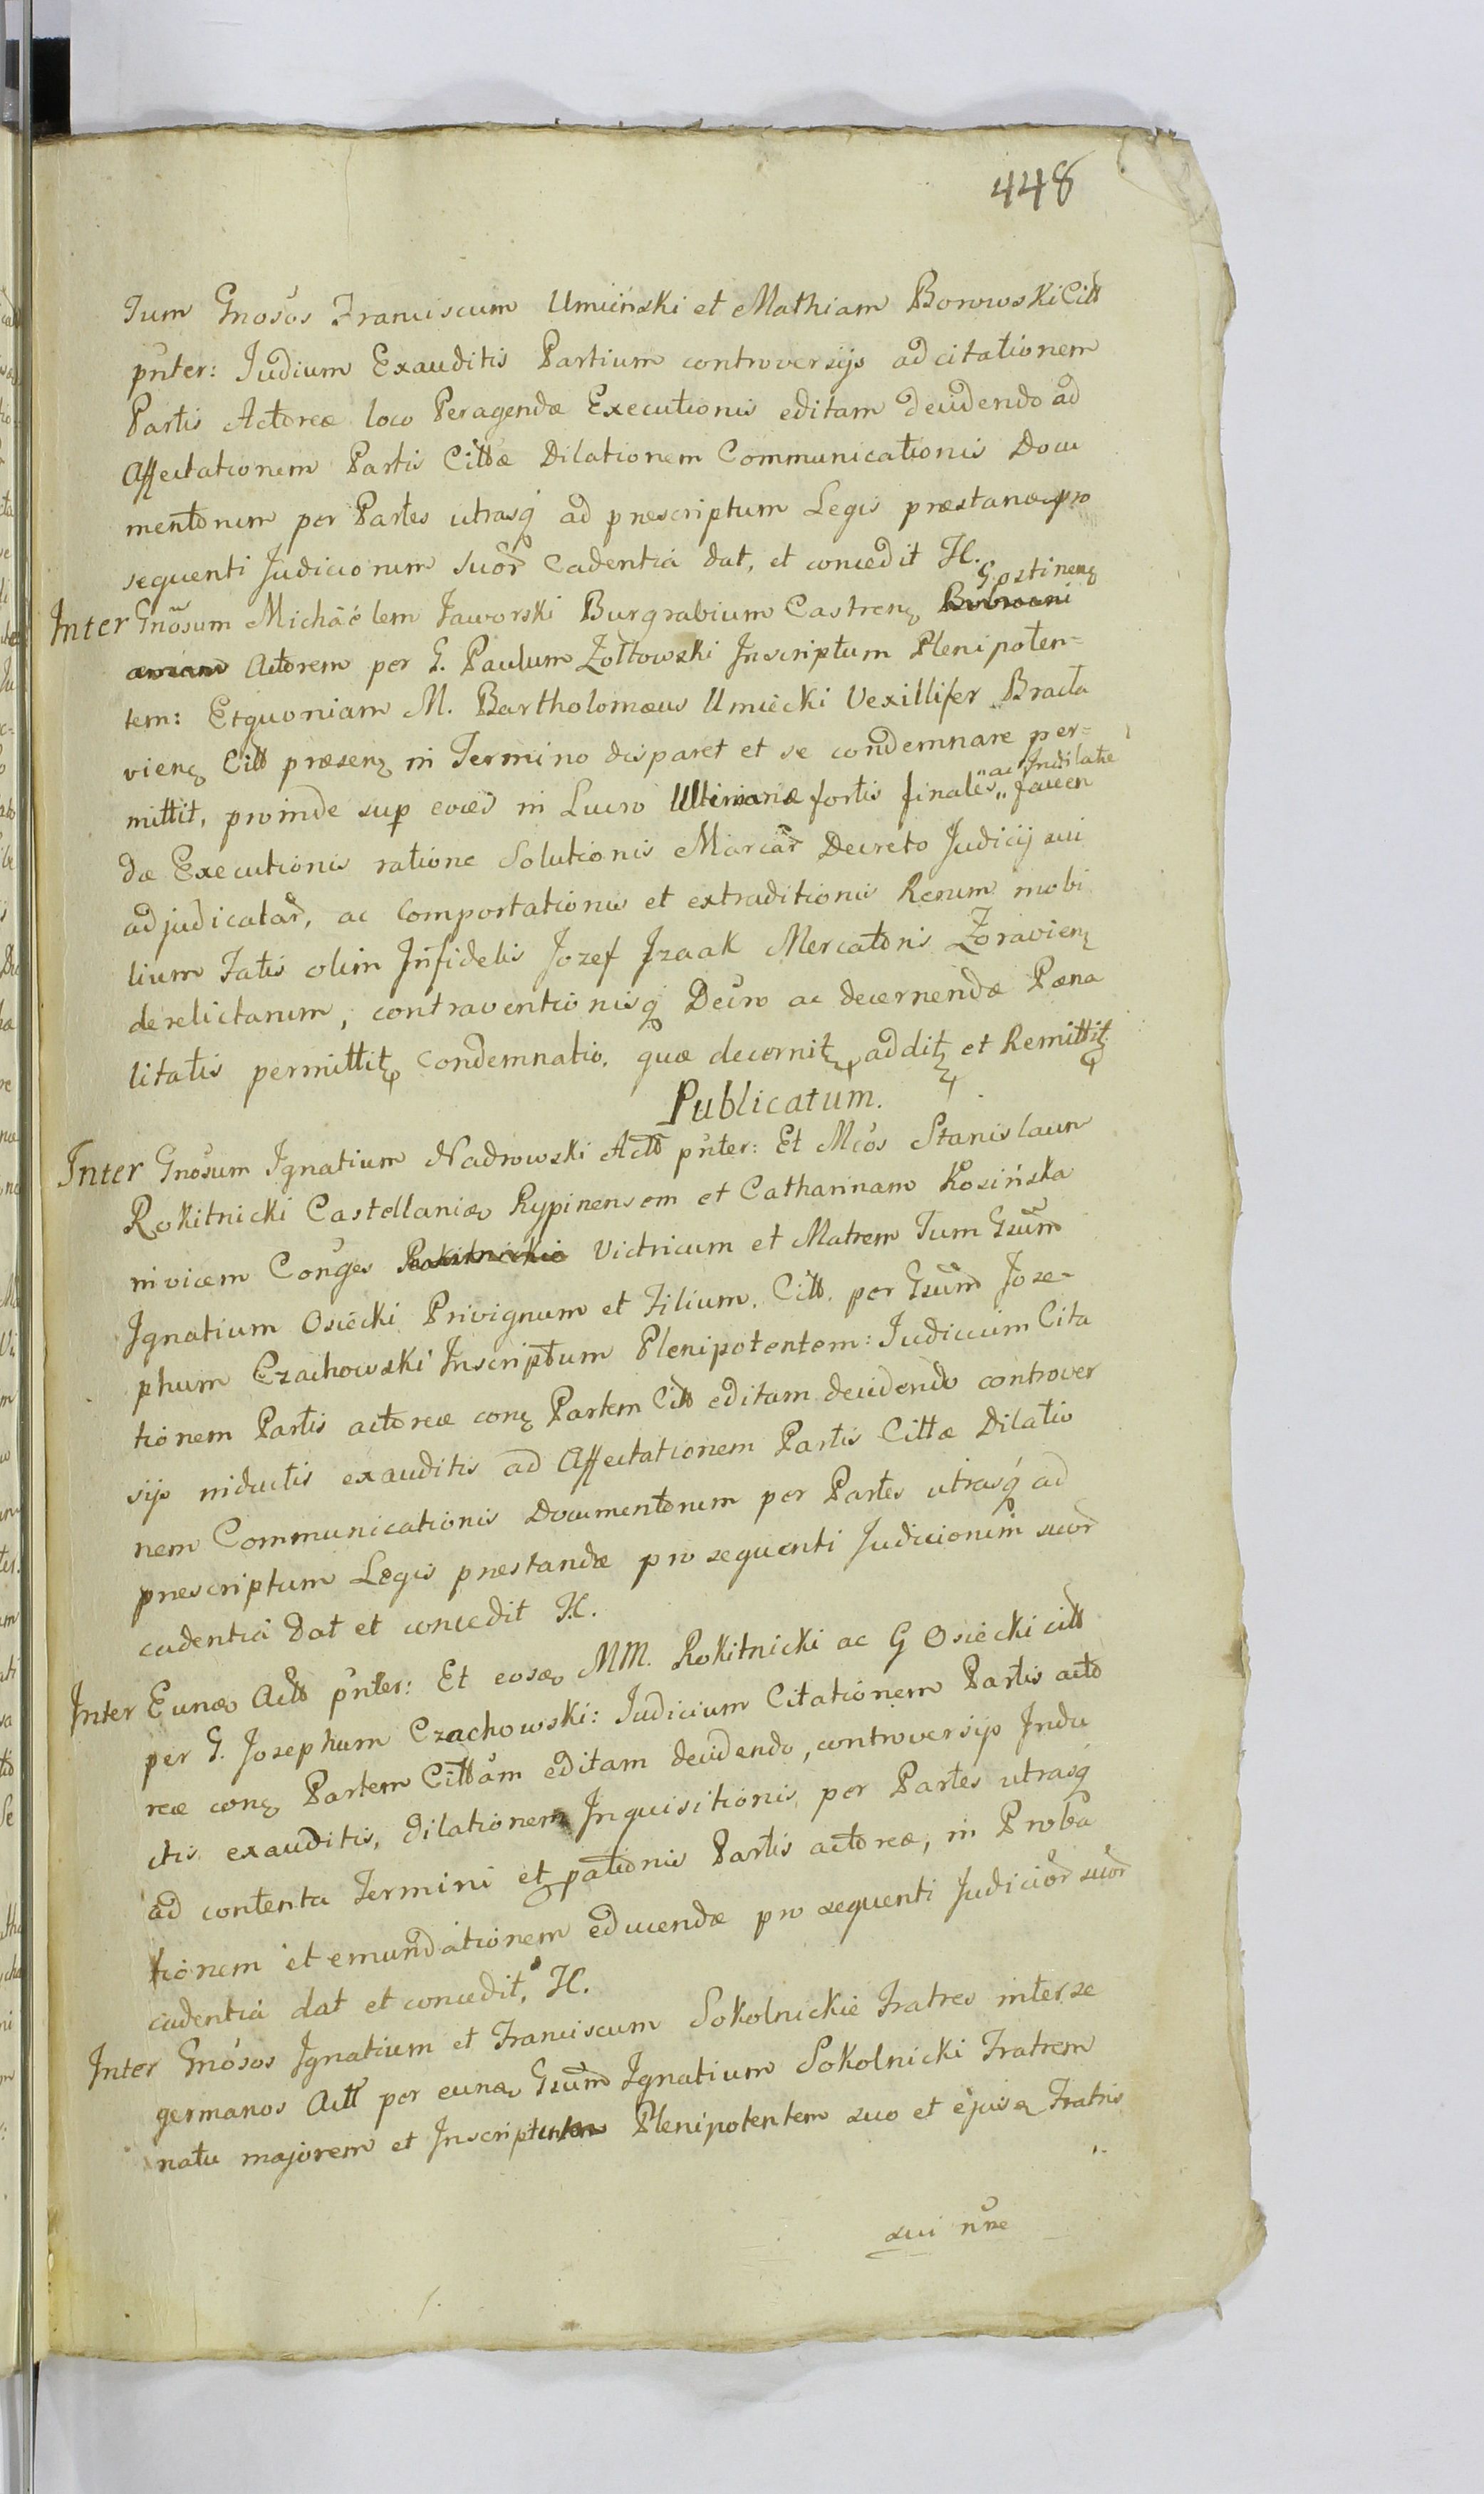 448
Tum Gnosos Franciscum Umiński et Mathiam Borowski Citt
pnter: Judium Exauditis Partium controversijs ad citationem
Partis Actoreæ loco Peragendæ Executionis editam decidendo ad
Affectationem Partis Cittæ Dilationem Communicationis Docu
mentorum per Partes utrasq ad præscriptum Legis præstandæ pro
sequenti Judiciorum suor Cadentia dat, et concedit H.
Gostinens
Inter Gnosum Michaëlem Jaworski Burgrabium Castrens
Actorem per G. Paulum Żołtowski Inscriptum Plenipoten=
tem: Et quoniam M. Bartholomæus Umiecki Vexillifer Bracta
viens Citt præsens in Termino disparet et se condemnare per=
ac Indilate
mittit, proinde sup eodes in Lucro Ultimariæ fortis finales,, facien
dæ Executionis ratione Solutionis Marcar Decreto Judicij sui
adjudicatar, ac Comportationis et extraditionis Rerum mobi
lium Fatis olim Infidelis Jozef Jzaak Mercatoris Zoraviens
derelictarum, contraventionisq Decro ac decernendæ Pæna
litatis permittit condemnatio, quæ decernit, addit et Remittit
Publicatum.
Inter Gnosum Ignatium Nadrowski Actt pnter: Et Mcos Stanislaum
Rokitnicki Castellaniæ Rypinensem et Catharinam Kosińska
invicem Conges Victricum et Matrem Tum Gsum
Ignatium Osiecki Privignum et Filium. Citt. per Gsum Jose-
phum Czachowski Inscriptum Plenipotentem: Judicium Cita
tionem Partis actoreæ cons Partem Citt editam decidendo controver
sijs inductis exauditis ad Affectationem Partis Cittæ Dilatio
nem Communicationis Documentorum per Partes utrasq ad
præscriptum Legis præstandæ pro sequenti Judiciorum suor
cadentia dat et concedit H.
Inter Eundo Actt pnter: Et eosdo MM. Rokitnicki ac G Osiecki citt
per G. Josephum Czachowski: Judicium Citationem Partis acto
reæ cons Partem Cittam editam decidendo, controversijs Indu
ctis exauditis, dilationem Inquisitionis per Partes utrasq
ad contenta Termini et pationis Partis actoreæ, in Proba
tionem et emundationem educendæ pro sequenti Judicior suor
cadentia dat et concedit, H.
Inter Gnosos Ignatium et Franciscum Sokolnickie Fratres inter se
germanos Actt per eund Gsum Ignatium Sokolnicki Fratrem
natu majorem et Inscriptum Plenipotentem suo et ejusd Fratris
sui nne